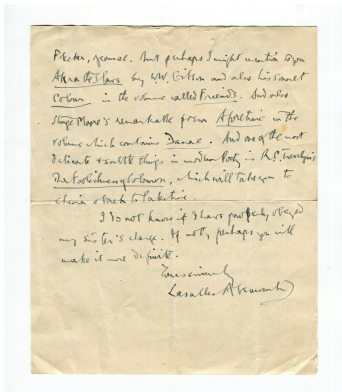 Flecker, of course. But perhaps I might mention to you
Akra the Slave by W.W. Gibson and also his sonnet
Colour in the volume called Friends. And also
Sturge Moore's remarkable poem Aforetime in the
volume which contains Danae. And one of the most
delicate & subtle things in modern Poetry is R.C. Trevelyan's
The Foolishness of Solomon, which will take you to
China & back to Palestine.
I do not know if I have properly obeyed
my sister's charge. If not, perhaps you will
make it more definite.
Yours sincerely
Lascelles Abercrombie